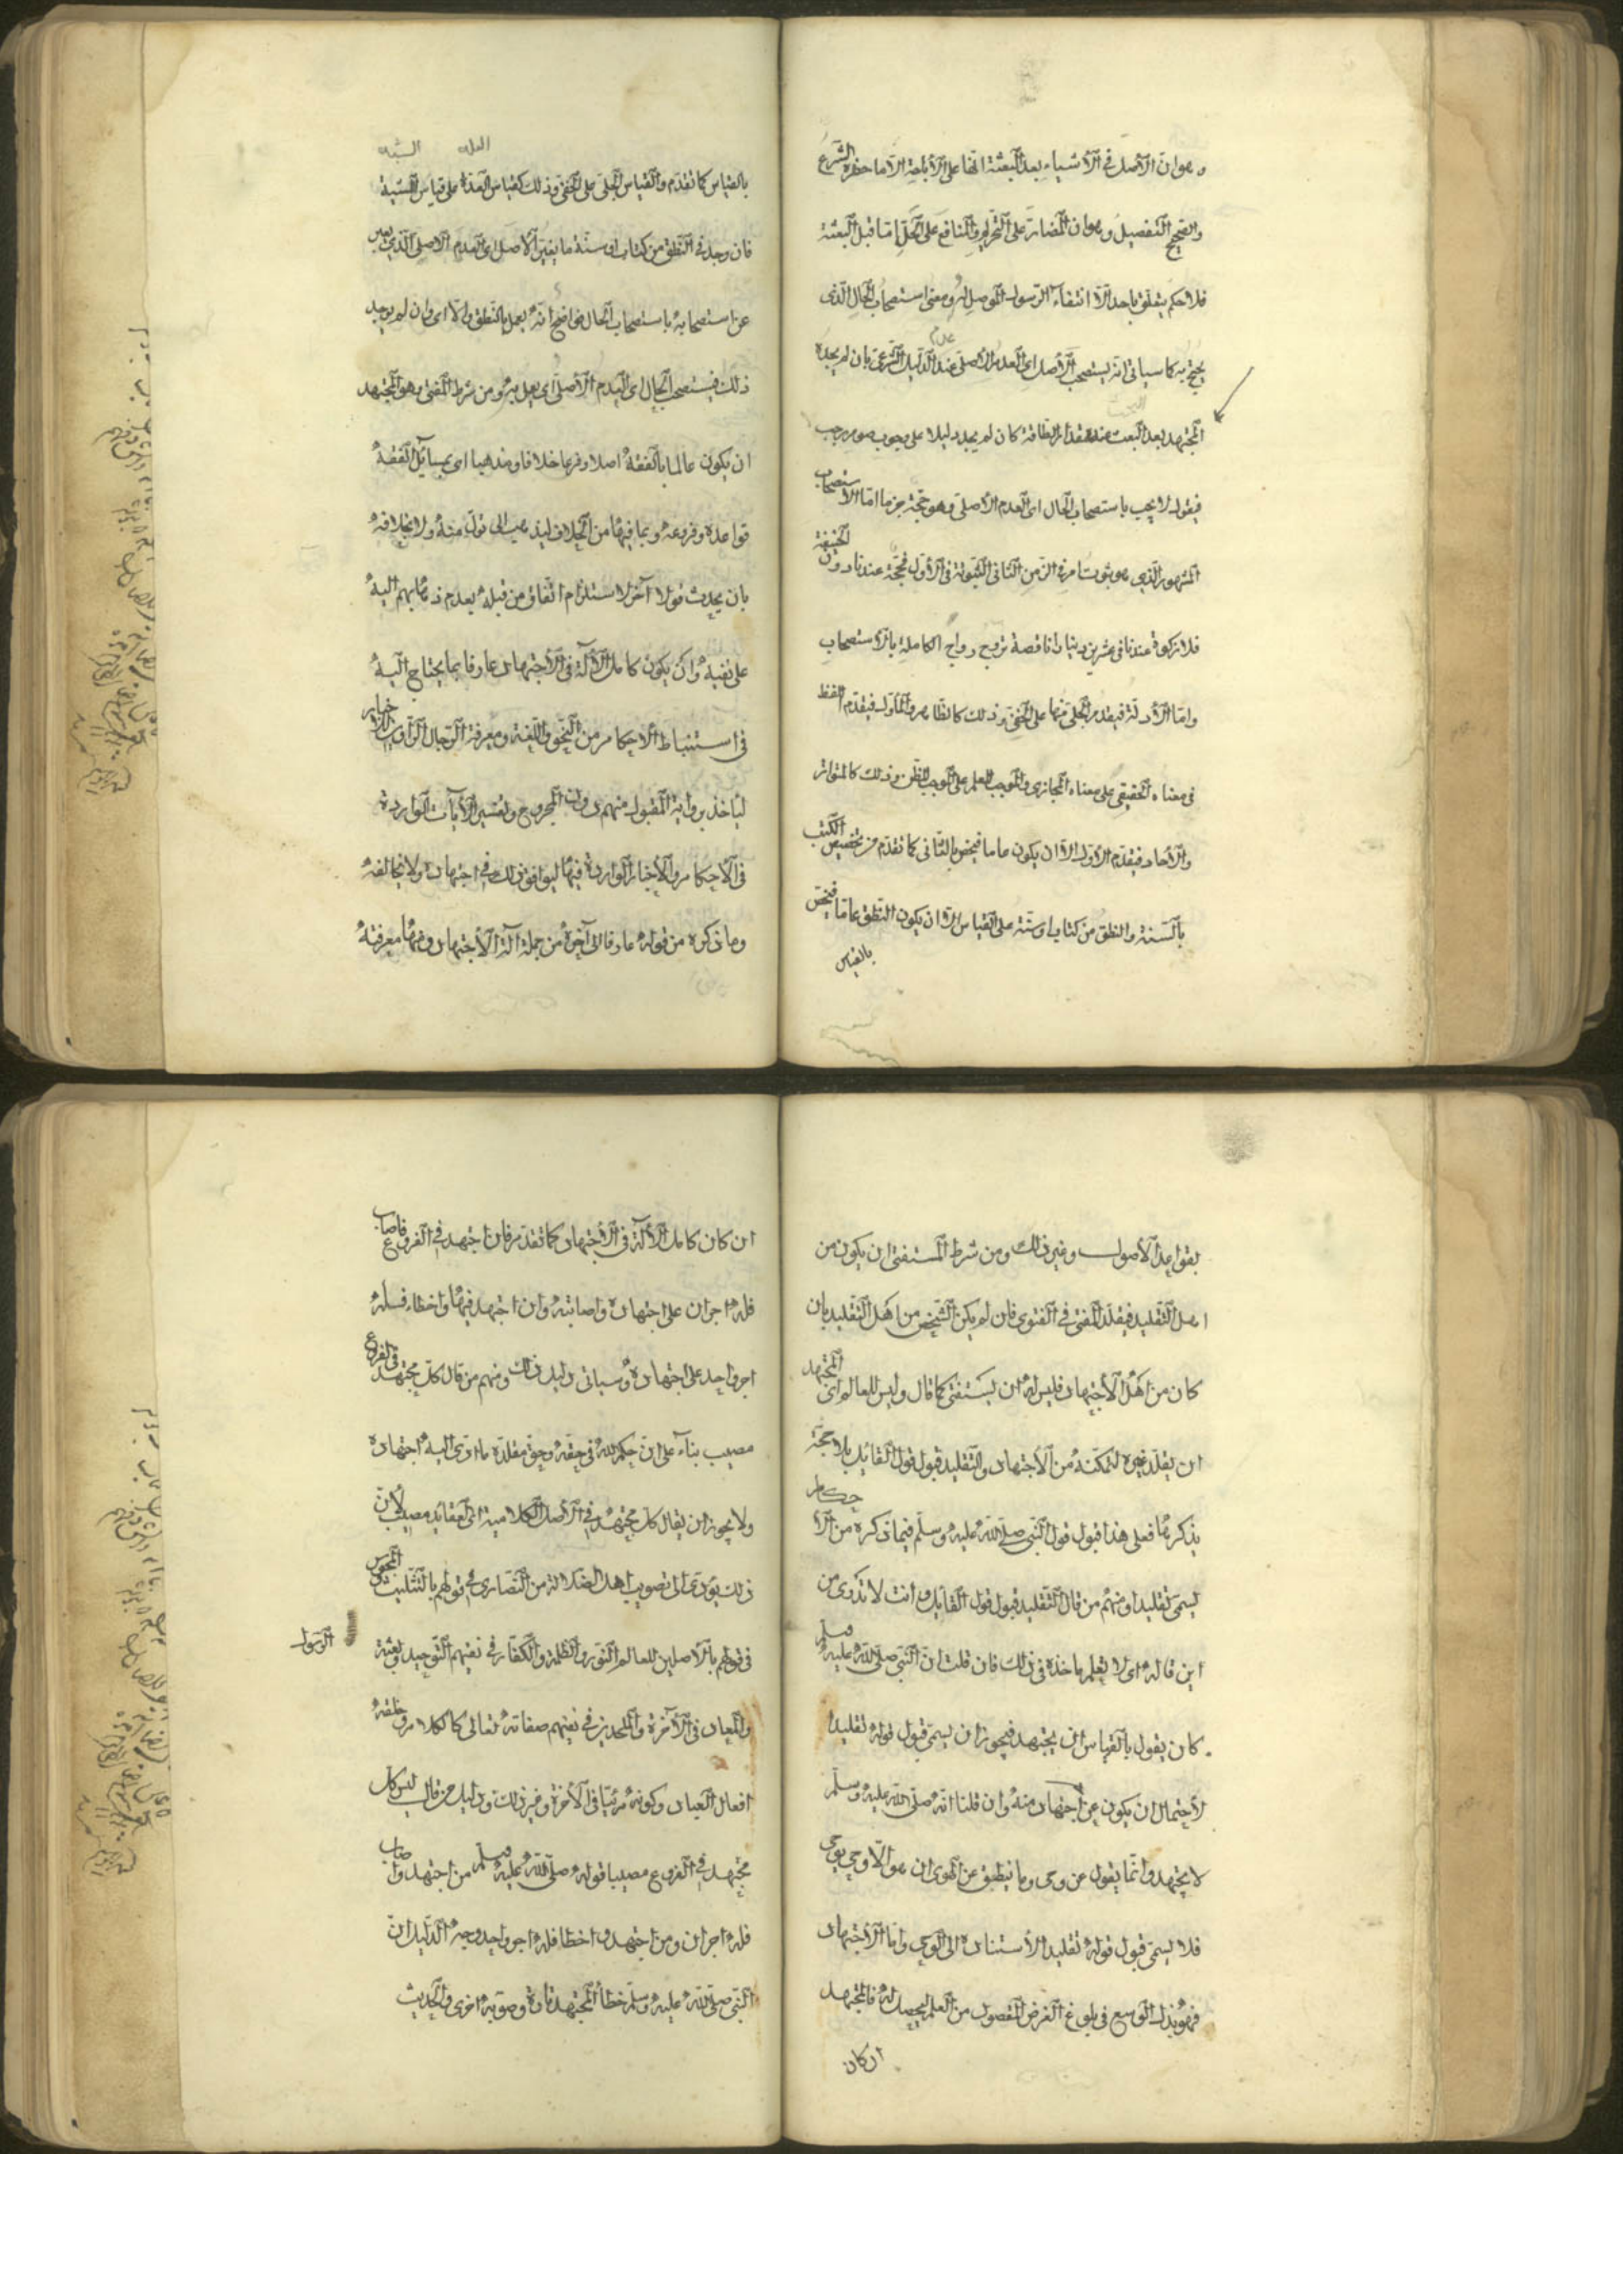 وهو ان الأصل في الأشياء بعد البعثة انها على الأباحة الا ما حظره الشرع
والصحيح التفصيل وهو ان المضار على التحريم والمنافع على الحل اما قبل البعثة
فلا حكم يتعلق باحد الا انتفاء الرسول الموصل له ومعنى استصحاب الحال الذي
عدم
يحتج به كما سياتي انه يستصحب الأصل اى العدم الأصلي عند الدليل الشرعي بان لم يجده
المجتهد بعد البحث عنه بقدر الطاقة كان لم يجد دليلا على وجوب صوم رجب
فيقول لا يجب باستصحاب الحال اى العدم الأصلي وهو حجة جزما اما الأستصحاب
المشهور الذي هو ثبوت امر في الزمن الثاني لثبوته في الأول فحجة عندنا دون الحنيفة
فلا زكوة عندنا في عشرين دينارا ناقصة تروج رواج الكاملة بالأستصحاب
واما الأدلة فيقدم الجلي منها على الخفي وذلك كالظاهر والمأول فيقدم اللفظ
في معناه الحقيقي على معناه المجازي والموجب للعلم على الموجب للظن وذلك كالمتواتر
والأحاد فيقدم الأول الا ان يكون عاما فيخص بالثاني كما تقدم من تخصيص الكتب
بالسنة والنطق من كتاب او سنة على القياس الا ان يكون النطق عاما فيخص
بالقياس
العله الشبه
بالقياس كما تقدم والقياس الجلي على الخفي وذلك كقياس العلة على قياس الشبه
فان وجد في النطق من كتاب او سنة ما يغير الأصل اى العدم الأصلي الذي يعبر
عن استصحابه باستصحاب الحال فواضح انه يعمل بالنطق والا اى وان لم يوجد
ذلك فيستصحب الحال اى العدم الأصلي اى يعمل به ومن شرط المفتي وهو المجتهد
ان يكون عالما بالفقه اصلا وفرعا خلافا ومذهبا اى بمسائل الفقه
قواعده وفروعه وبما فيها من الخلاف ليذهب الى قول منه ولا يخالفه
بان يحدث قولا آخر لاستلزام اتفاق من قبله بعدم ذهابهم اليه
على نفيه وان يكون كامل الألة في الأجتهاد عارفا بما يحتاج اليه
في استنباط الأحكام من النحو واللغة ومعرفة الرجال الراوين للأخبار
لياخذ برواية المقبول منهم دون المجروح وتفسير الأيات الواردة
في الأحكام والأخبار الواردة فيها ليوافق ذلك في اجتهاده ولا يخالفه
وما ذكره من قوله عارفا الى آخره من جملة آلة الأجتهاد ومنها معرفته
بقواعد الأصول وغير ذلك ومن شرط المستفتي ان يكون من
اهل التقليد فيقلد المفتي في الفتوى فان لم يكن الشخص من اهل التقليد بان
كان من اهل الأجتهاد فليس له ان يستفتي كما قال وليس للعالم اى المجتهد
ان يقلد غيره لتمكنه من الأجتهاد والتقليد قبول قول القائل بلا حجة
يذكرها فعلى هذا قبول قول النبي صلى الله عليه وسلم فيما ذكره من الأحكام
يسمى تقليدا ومنهم من قال التقليد قبول قول القائل وانت لا تدرى من
اين قاله اى لا تعلم ماخذه في ذلك فان قلت ان النبي صلى الله عليه وسلم
كان يقول بالقياس بان يجتهد فيجوز ان يسمى قبول قوله تقليدا
لأحتمال ان يكون عن اجتهاد منه وان قلنا انه صلى الله عليه وسلم
لا يجتهد وانما يقول عن وحى وما ينطق عن الهوى ان هو الا وحي يوحى
فلا يسمى قبول قوله تقليدا لأستناده الى الوحي واما الأجتهاد
فهو بذل الوسع في بلوغ الغرض المقصود من العلم ليحصل له فالمجتهد
ان كان
ان كان كامل الألة في الأجتهاد كما تقدم فان اجتهد في الفروع فاصاب
فله اجران على اجتهاده واصابته وان اجتهد فيها واخطاء فله
اجر واحد على اجتهاده وسياتي دليل ذلك ومنهم من قال كل مجتهد في الفروع
مصيب بناء على ان حكم الله في حقه وحق مقلده ما ادى اليه اجتهاده
ولا يجوز ان يقال كل مجتهد في الأصل الكلامية اى العقائد مصيب لأن
ذلك يؤدى الى تصويب اهل الضلالة من النصارى في قولهم بالتثليث والمجوس
في قولهم بالأصلين للعالم النور والظلمة والكفار في نفيهم التوحيد وبعثة
الرسول
والمعاد في الآخرة والملحدين في نفيهم صفاته تعالى كالكلام وخلقه
افعال العباد وكونه مرئيا في الآخرة وغير ذلك ودليل من قال ليس كل
مجتهد في الفروع مصيبا قوله صلى الله عليه وسلم من اجتهد واصاب
فله اجران ومن اجتهد واخطا فله اجر واحد وجه الدليل ان
النبي صلى الله عليه وسلم خطأ المجتهد تارة وصوبه اخرى والحديث